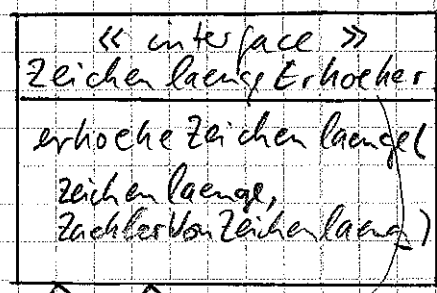 « interface »
ZeichenlaengeErhoeher
erhoeheZeichenlaenge(
zeichenlaenge,
ZaehlerVonZeichenlaenge)